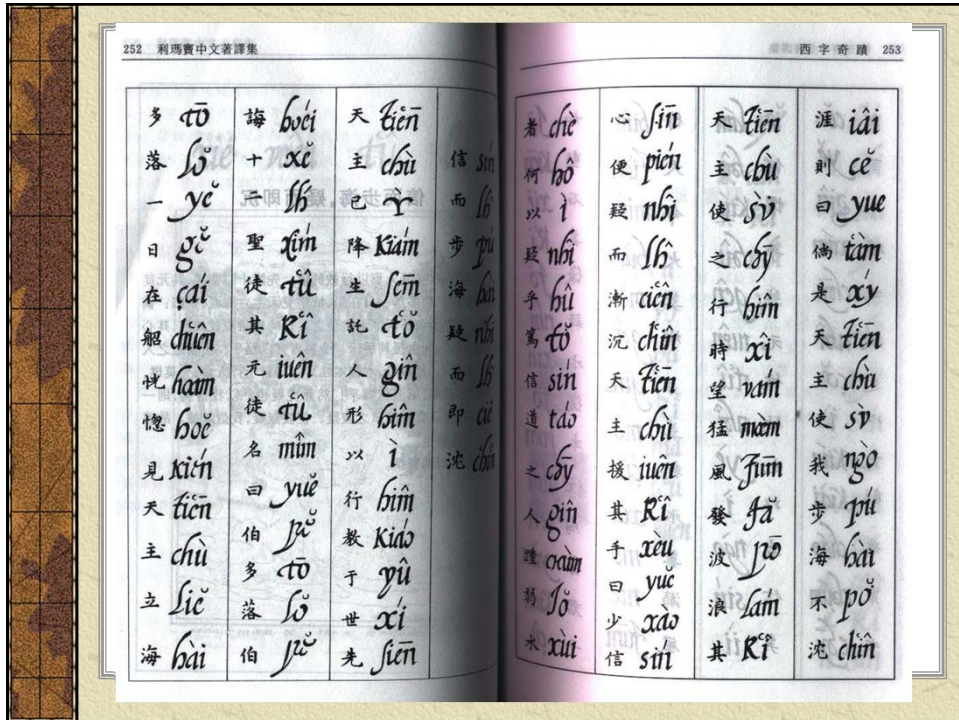 252 利瑪竇中文著譯集
信 sín 而 lĥ 步 pú 海 hài 疑 nhî 而 lĥ 即 ciě 沈 chîn
天 t‘iēn 主 chù 已 ỳ 降 Kiám 生 sēm 託 t‘ŏ 人 gîn 形 hîm 以 ì 行 hîm 教 Kiáo 于 yû 世 xí 先 siēn
誨 hoéi 十 xĕ 二 lh́ 聖 xím 徒 t‘û 其 K‘î 元 iuên 徒 t‘û 名 mîm 曰 yuĕ 伯 pĕ 多 tō 落 lŏ 伯 pĕ
多 tō 落 lŏ 一 yĕ 日 gĕ 在 çái 船 chuên 恍 hoàm 惚 hoĕ 見 Kién 天 t‘iēn 主 chù 立 liĕ 海 hài
西字奇蹟 253
涯 iâi 則 cĕ 曰 yue 倘 t‘àm 是 xý 天 t‘iēn 主 chù 使 sv̀ 我 ngò 步 pú 海 hài 不 pŏ 沈 chîn
天 t‘iēn 主 chù 使 sv̀ 之 chȳ 行 hîm 時 xî 望 vám 猛 màm 風 fūm 發 fă 波 pō 浪 lám 其 K‘î
心 sīn 便 pién 疑 nhî 而 lĥ 漸 cién 沉 chîn 天 t‘iēn 主 chù 援 iuên 其 K‘î 手 xèu 曰 yuĕ 少 xào 信 sín
者 chè 何 hô 以 ì 疑 nhî 乎 hû 篤 tŏ 信 sín 道 táo 之 chȳ 人 gîn 踵 chùm 弱 jŏ 水 xùi